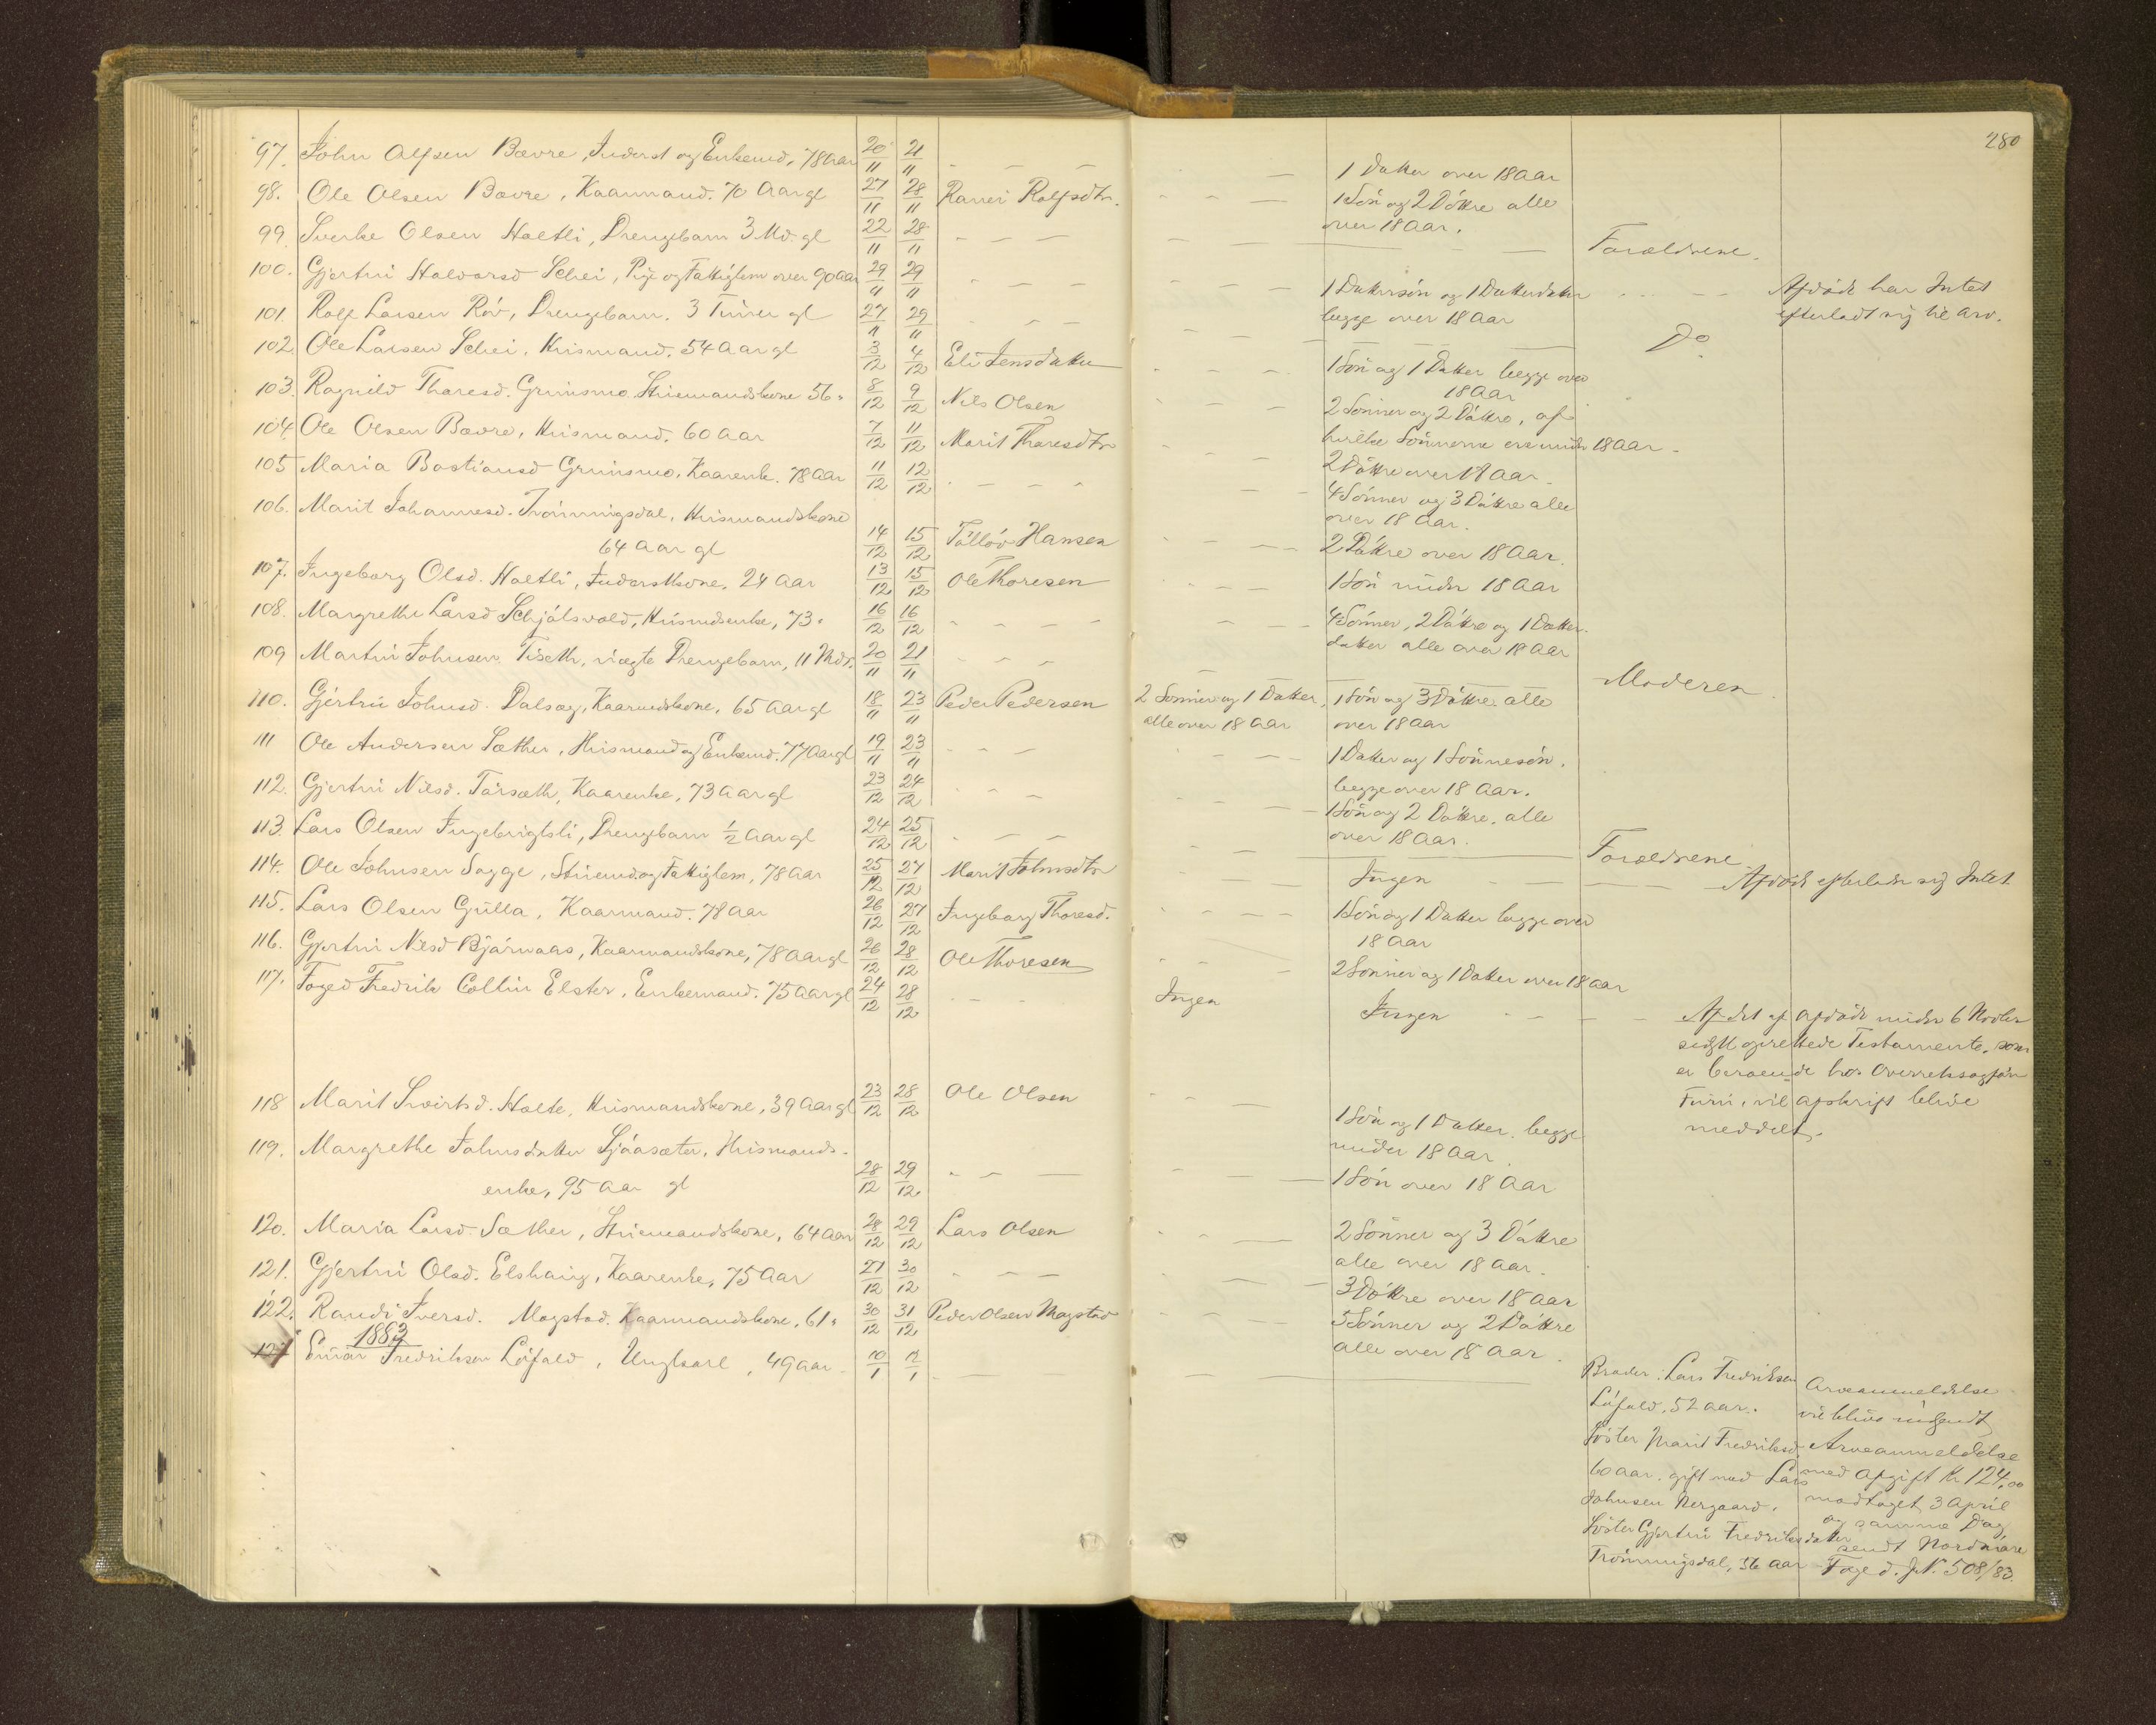 280
97. John Olsen Bævre, Inderst og Enkemd, 78 Aar 20/11 21/11 – – – – 1 Datter over 18 Aar
98. Ole Olsen Bævre, Kaarmand. 70 Aar gl 27/11 28/11 Ranei Rolfsdtr. – – – 1 Søn og 2 Døttre alle
over 18 Aar.
99. Sverke Olsen Holtli, Drengebarn 3 Md. gl 22/11 28/11 – – – – – – – Forældrene.
100. Gjertru Halvorsd Schei, Pige og Fattiglem over 90 Aar 29/11 29/11 – – – – – – 1 Dattersøn og 1 Datterdatter – – Afdøde har Intet
begge over 18 Aar efterladt sig til Arv.
101. Rolf Larsen Röv, Drengebarn. 3 Timer gl 27/11 29/11 – – – – – – Do
102. Ole Larsen Schei, Husmand. 54 Aar gl 3/12 4/12 Eli Jensdatter – – – 1 Søn og 1 Datter begge over
18 Aar
103. Ragnild Thoresd. Grinsmo. Struemandskone 56 " 8/12 9/12 Nils Olsen – – – 2 Sønner og 2 Døttre, af
hvilke Sønnerne ere under 18 Aar.
104. Ole Olsen Bævre, Husmand. 60 Aar 7/12 11/12 Marit Thoresdtr – – – 2 Døttre over 18 Aar.
105 Maria Bastiansd Grinsmo. Kaarenke. 78 Aar 11/12 12/12 – – – – – 4 Sønner og 3 Døttre alle
over 18 Aar.
106. Marit Johannesd. Trönningsdal, Husmandskone
64 Aar gl 14/12 15/12 Tölløv Hansen – – – 2 Døttre over 18 Aar.
107. Ingeborg Olsd. Holtli, Inderstkone, 24 Aar 13/12 15/12 Ole Thoresen – – – 1 Søn under 18 Aar
108. Margrethe Larsd Schjølsvold, Husmdsenke, 73 " 16/12 16/12 – – – – – – 4 Sønner, 2 Døttre og 1 Datter-
datter alle over 18 Aar
109 Martin Johnsen Tiseth, uægte Drengebarn, 11 Mdr. 20/11 21/11 – – – – – Moderen
110. Gjertru Johnsd. Dalsøg, Kaarmdskone, 65 Aar gl 18/11 23/11 Peder Pedersen 2 Sønner og 1 Datter, 1 Søn og 3 Døttre alle
alle over 18 Aar over 18 Aar
111 Ole Andersen Sæther, Husmand og Enkemd. 77 Aar gl 19/11 23/11 – – – – – – 1 Datter og 1 Sønnesøn.
begge over 18 Aar.
112. Gjertru Nilsd. Törsæth, Kaarenke, 73 Aar gl 23/12 24/12 – – – – – – 1 Søn og 2 Døttre, alle
over 18 Aar.
113. Lars Olsen Ingebrigtsli, Drengebarn 1/2 Aar gl 24/12 25/12 – – – – – – Forældrene
114. Ole Johnsen Sogge, Struemd. og Fattiglem, 78 Aar 25/12 27/12 Marit Johnsdtr – – – Ingen – – – Afdøde efterlader sig Intet
115. Lars Olsen Gulla, Kaarmand. 78 Aar 26/12 27/12 Ingeborg Thoresd. – – – 1 Søn og 1 Datter begge over
18 Aar
116. Gjertru Nilsd Bjørnaas, Kaarmandskone, 78 Aar gl 26/12 28/12 Ole Thoresen – – – 2 Sønner og 1 Datter over 18 Aar
117. Foged Fredrik Collin Elster, Enkemand. 75 Aar gl 24/12 28/12 – – – Ingen Ingen – – – Af det af Afdøde under 6 Novbr
oprettede Testamente, som
er beroende hos Overretssagfør
vil Afskrift blive
meddelt.
118 Marit Sivertsd. Holte, Husmandskone, 39 Aar gl 23/12 28/12 Ole Olsen – – – 1 Søn og 1 Datter begge
under 18 Aar
119. Margrethe Johnsdatter Sjøasæter, Husmands-
enke, 95 Aar gl 28/12 29/12 – – – – – 1 Søn over 18 Aar
120. Maria Larsd. Sæther, Struemandskone, 64 Aar 28/12 29/12 Lars Olsen – – – 2 Sønner og 3 Døttre
alle over 18 Aar.
121. Gjertru Olsd. Elshaug, Kaarenke, 75 Aar 27/12 30/12 – – – – – – 3 Døttre over 18 Aar
122. Randi Iversd. Mogstad. Kaarmandskone, 61 " 30/12 31/12 Peder Olsen Mogstad – – – 5 Sønner og 2 Døttre
alle over 18 Aar.
1883
1 Einar Fredriksen Löfald, Ungkarl, 49 Aar 10/1 12/1 – – – – – – Broder: Lars Fredriksen Arveanmeldelse
Löfald, 52 Aar. vil blive indsendt
Søster Marit Fredriksd. Arveanmeldelse
60 Aar, gift med Lars med Afgift Kr 124,00
Johnsen Nergaard. modtaget 3 April
og samme Dag
Søster Gjertru Fredriksdatter sendt Nordmøre
Trönningsdal, 56 Aar Foged. J.N. 508/83.